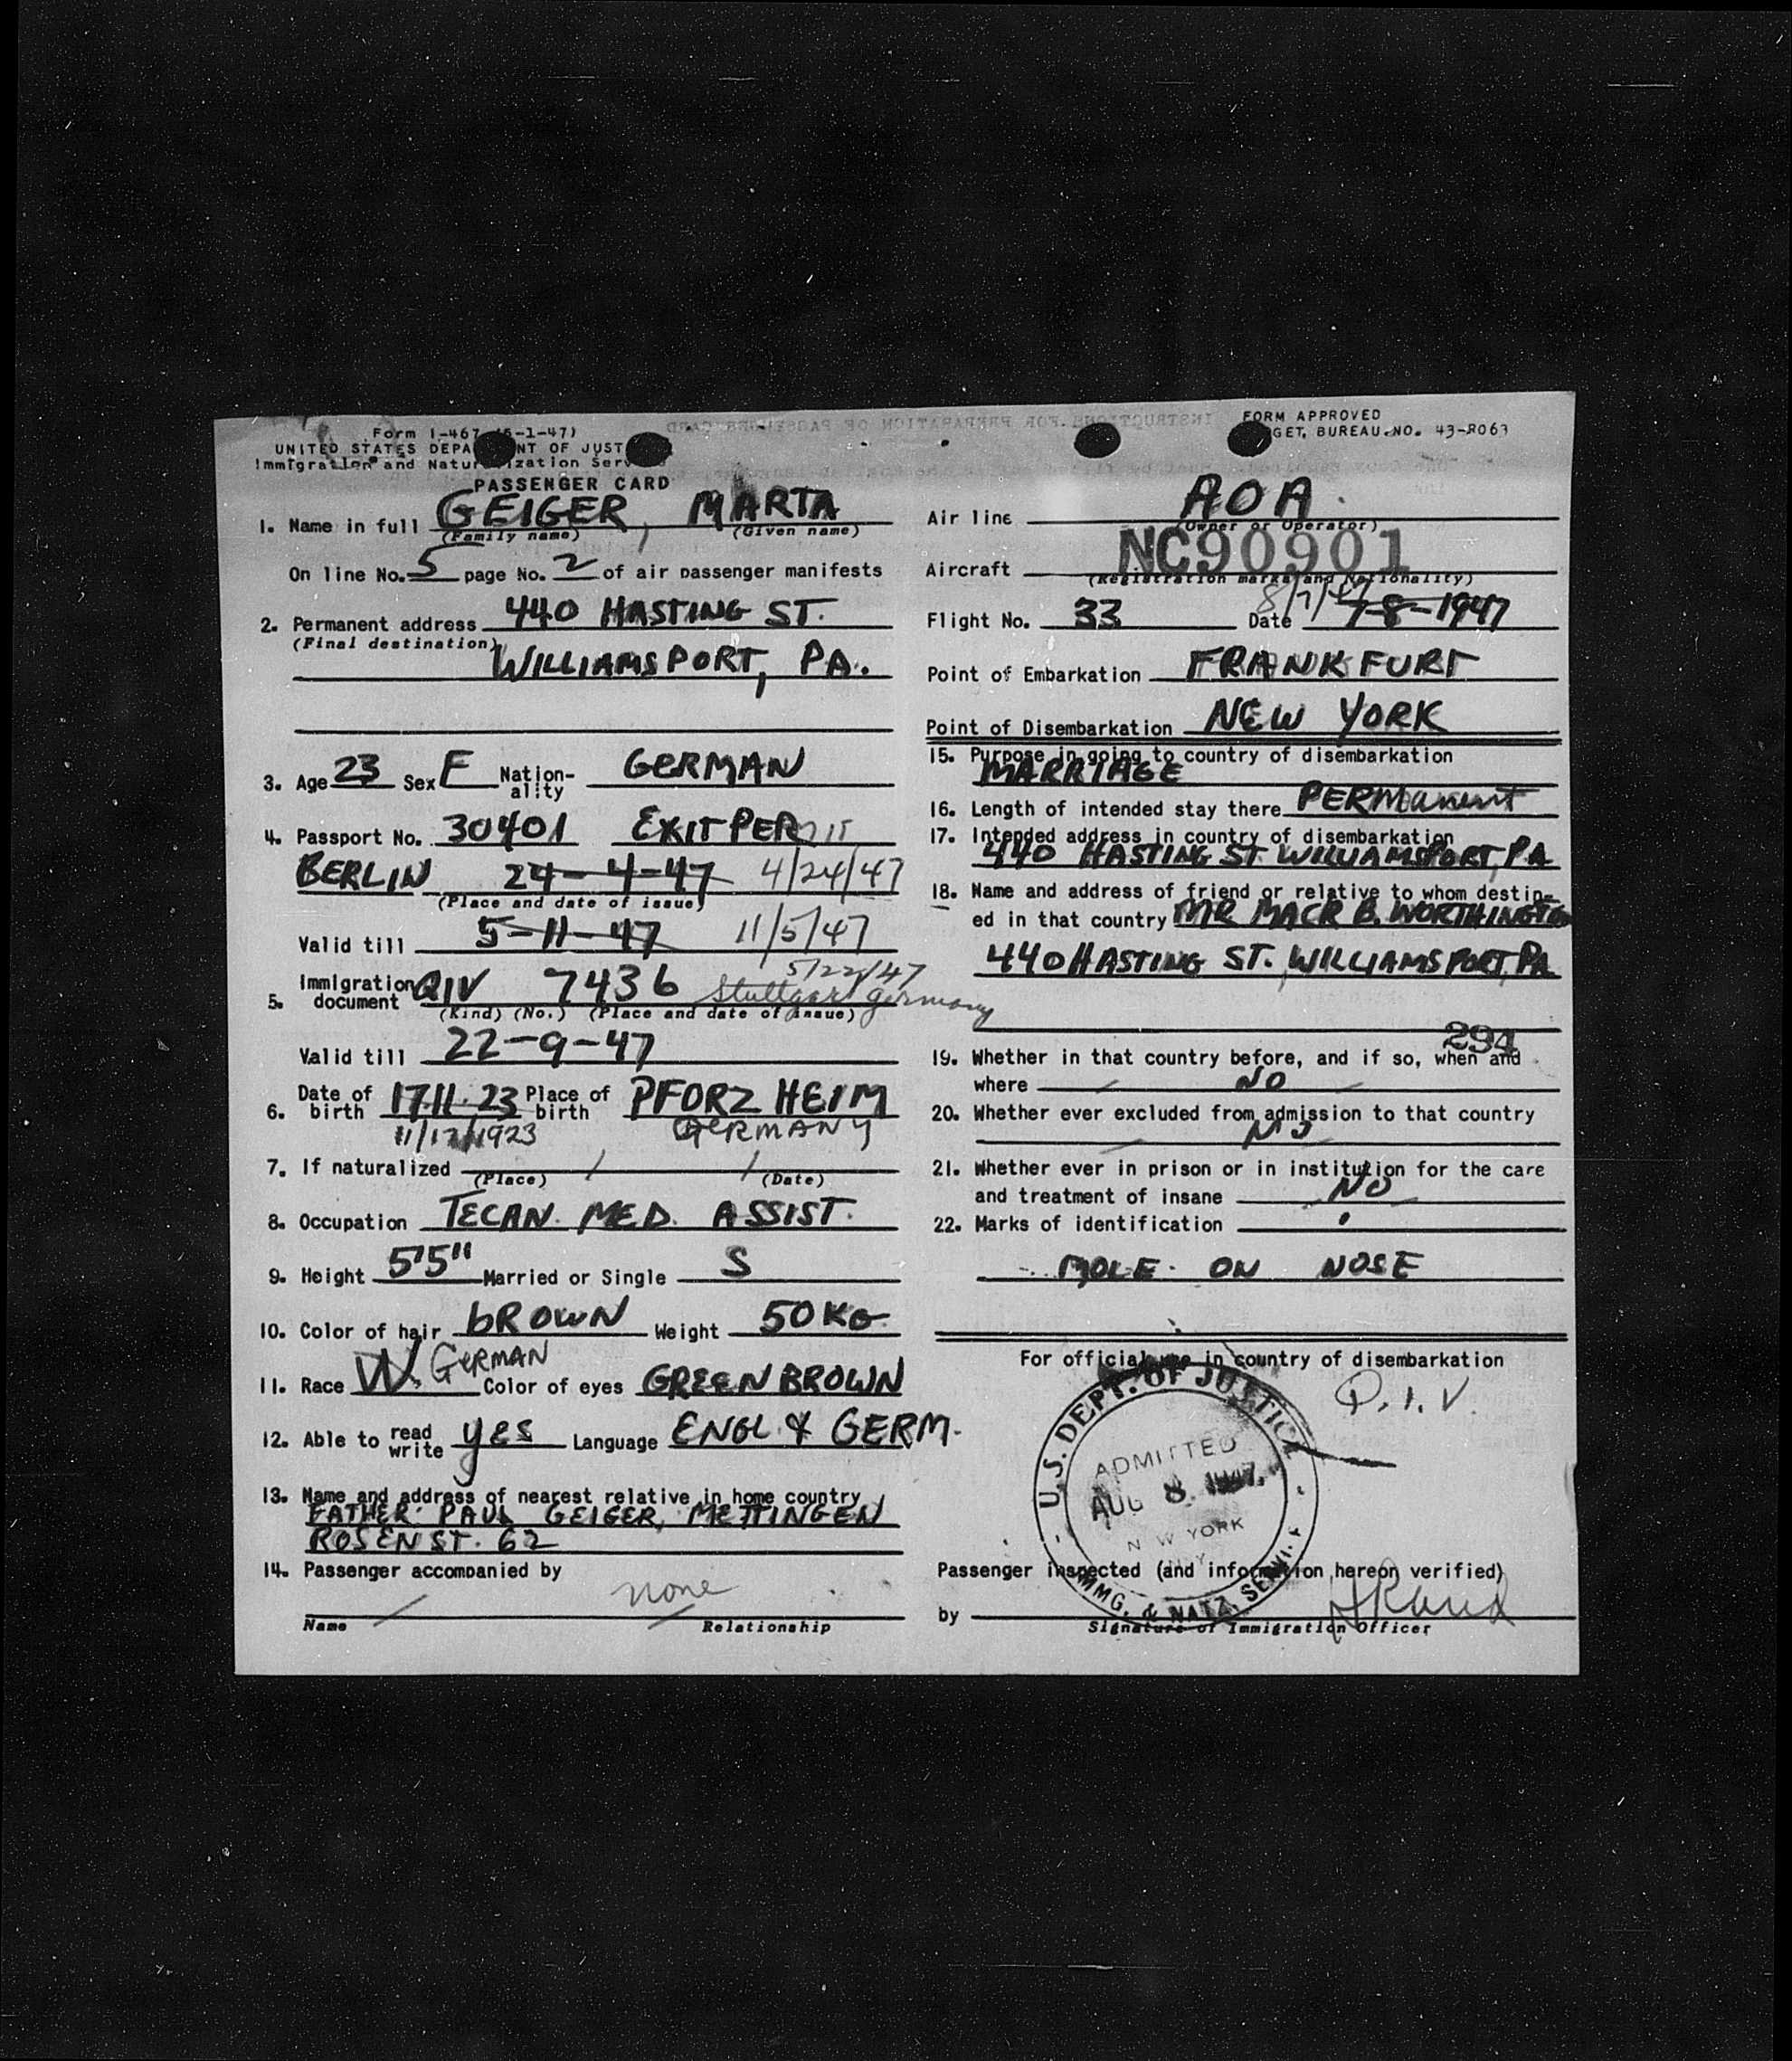 Form I-467 (5-1-47)
UNITED STATES DEPA NT OF JUST
Immigration and Natur ization Serv
PASSENGER CARD
1. Name in full GEIGER, MARTA
(Family name) (Given name)
On line No. 5 page No. 2 of air passenger manifests
2. Permanent address 440 HASTING ST.
(Final destination) WILLIAMSPORT, PA.
3. Age 23 Sex F Nation-ality GERMAN
4. Passport No. 30401 EXIT PERMIT
BERLIN 24-4-47 4/24/47
(Place and date of issue)
Valid till 5-11-47 11/5/47
5/22/47
5. Immigration document QIV 7436 Stuttgart Germany
(Kind) (No.) (Place and date of issue)
Valid till 22-9-47
6. Date of birth 17.11.23 Place of birth PFORZHEIM
11/17/1923 GERMANY
7. If naturalized / /
(Place) (Date)
8. Occupation TECAN. MED. ASSIST.
9. Height 5'5" Married or Single S
10. Color of hair BROWN Weight 50 KG
11. Race W. GERMAN Color of eyes GREEN BROWN
12. Able to read write yes Language ENGL & GERM.
13. Name and address of nearest relative in home country
FATHER: PAUL GEIGER, METTINGEN
ROSENST. 62
14. Passenger accompanied by
none
Name Relationship
INSTRUCTIONS FOR PREPARATION OF PASSENGER CARD
FORM APPROVED
GET, BUREAU NO. 43-R063
Air line AOA
(Owner or Operator)
Aircraft NC90901
(Registration marks and Nationality)
8/7/47
Flight No. 33 Date 7-8-1947
Point of Embarkation FRANKFURT
Point of Disembarkation NEW YORK
15. Purpose in going to country of disembarkation
MARRIAGE
16. Length of intended stay there PERManent
17. Intended address in country of disembarkation
440 HASTING ST WILLIAMSPORT, PA
18. Name and address of friend or relative to whom destin-
ed in that country MR MACR B. WORTHINGTON
440 HASTING ST., WILLIAMSPORT, PA
294
19. Whether in that country before, and if so, when and
where NO
20. Whether ever excluded from admission to that country
NO
21. Whether ever in prison or in institution for the care
and treatment of insane NO
22. Marks of identification
MOLE ON NOSE
For official use in country of disembarkation
Q.I.V.
U.S. DEPT. OF JUSTICE
ADMITTED
AUG 8 1947
N W YORK
N.Y.
IMMG. & NATZ. SERV.
Passenger inspected (and information hereon verified)
by
Signature of Immigration Officer